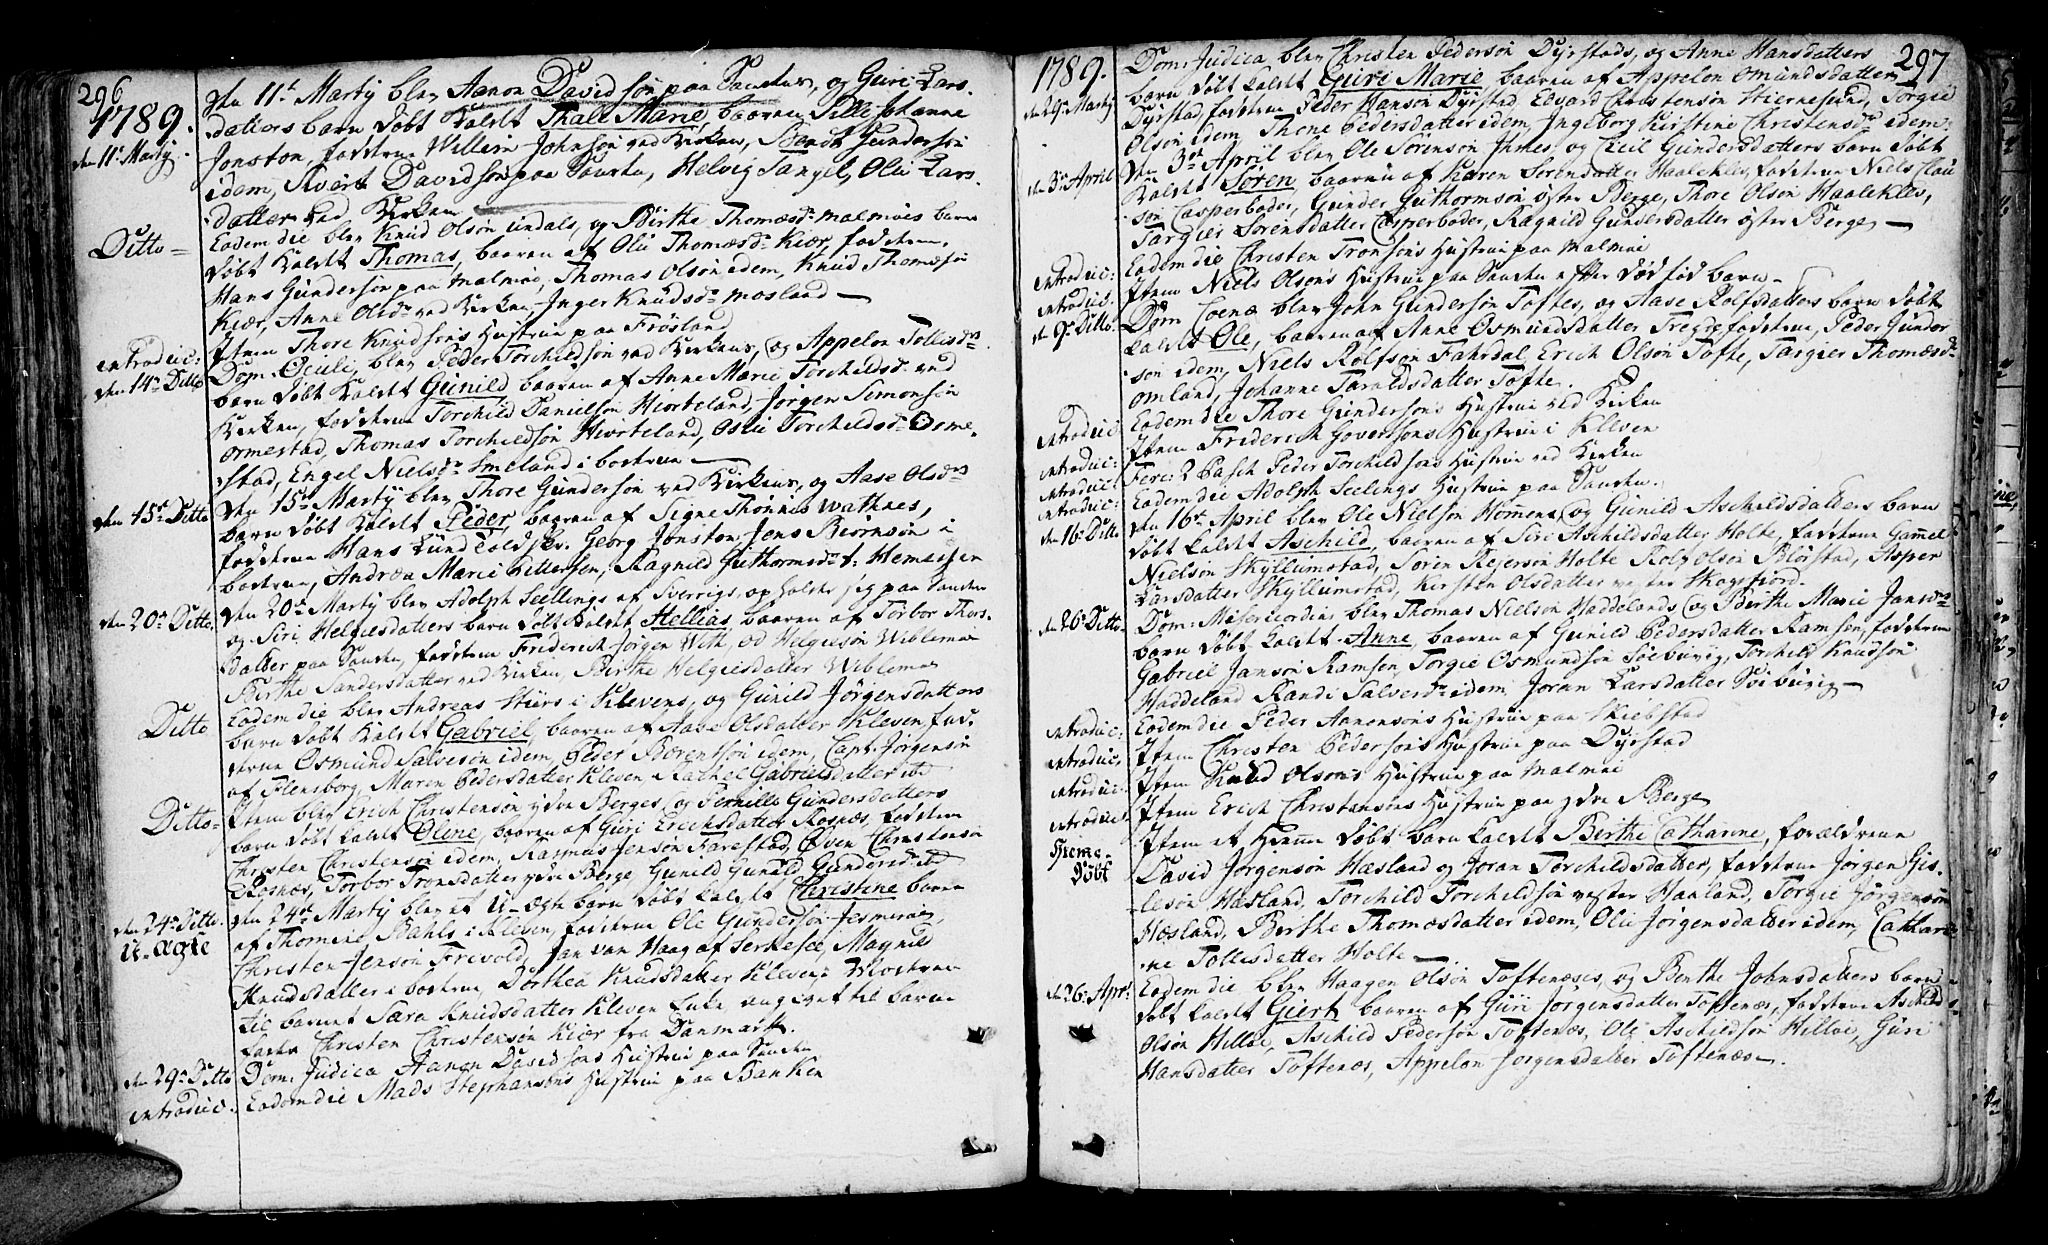 296
1789.
den 11te Martij
den 11t Martij blev Aanon Davidsøn paa Sanches, og Guri Lars-
datters barn døbt kaldt Thale Marie, baaren Sille Johanne
Jonston, fadderne Willem Johnson ved Kirken, Berndt Gundersøn
idem, Sivert Davidsøn paa Sanchen, Helvig Sangel, Olu Lars-
datter ved Kirken
Ditto
Eodem die blev Knud Olsøn undals, og Birthe Thomasdr malmöes barn
døbt kaldt Thomas, baaren af Olu Thomasdr Kiær, fadderne
Hans Gundersøn paa malmöe, Thomas Olsøn idem, Knud Thomæsøn
Kiær, Anne Olsdr ved Kirken, Inger Knudsdr mosland
introduc:
Item Thore Knudsøns Hustrue paa Frøsland
den 14de Ditto
Dom. Oculi blev Peder Torchildsøn ved Kirkens, og Appelon Tollisdrs
barn døbt kaldt Gunild baaren af Anne Marie Torchildsdr ved
Kirken, fadderne Torchild Danielsøn Hiorteland, Jørgen Simonsøn
Ormestad, Thomas Torchildsøn Hiorteland, Osle Torchildsdr Orme-
stad, Engel Nielsdr Smeland i bostrue
den 15de Ditto
den 15de Martij blev Thore Gundersøn ved Kirkens, og Aase Olsdrs
barn døbt kaldt Peder baaren af Signe Thönnis Wathnes,
fadderne Hans Lund Georg Jonston, Jens Biørnsøn i
bostrue, Andrea Marie Pettersen, Ragnild Guthormsdr t: Hemessen
den 20de Ditto
den 20de Martij blev Adolph Seelings af Sverrig, opholder sig paa Sanchen
og Siri Helgiesdatters barn døbt kaldt Hellias baaren af Torbor Thors-
datter paa Sanchen, fadderne Friderich Jørgen With, Od Helgiesøn Wiblemoe
Berthe Sandersdatter ved Kirken, Berthe Helgiesdatter Wiblemoe
Ditto
Eodem die blev Andreas Stürs i Klevens, og Gunild Jørgensdatters
barn døbt kaldt Gabriel, baaren af Aase Olsdatter Kleven, fad-
derne Osmund Salvesøn idem, Peder Børentsøn idem, Capt. Jörgensen
af Flensborg, Maren Pedersdatter Kleven Rachel Gabrielsdatter ibd
Ditto
Item blev Erich Christensøn ydre Berges, og Pernille Gundersdatters
barn døbt kaldt Oline, baaren af Guri Erichsdatter Rosnæs, fadderne
Christen Christensøn idem, Rasmus Jensøn Farestad, Even Christensøn
Rosnæs, Torbor Tronsdatter ydre Berge Gunild Gunild Gundersdatter
den 24de Ditto
u-ægte
den 24de Martij blev et u-ægte barn døbt kaldt Christine baaren
af Thomine Bahls i Kleven, fadderne Ole Gundersøn Jesmine
Christen Jensøn Frivold, Jan van Haag af Serkesee, Magnild
Knudsdatter i bostrue, Dorthea Knudsdatter Kleven, Moderen
til barnet Sara Knudsdatter Kleven Enke angivet til barne-
fader Christen Christensøn Kiær fra Danmark.
den 29de Ditto
Dom. Judica Aanon Davidsøns Hustrue paa Sanchen
introduc.
Eodem die Mads Stephansøns Hustrue paa Banken
297
1789.
den 29de Martij
Dom. Judica blev Christen Pedersøn Dyrstads, og Anne Hansdatters
barn døbt kaldt Guri Marie baaren af Appelon Omundsdatter
Dyrstad, fadderne Peder Hansøn Dyrstad, Edvard Christensøn Stiernesund, Torgie
Olsøn idem, Thone Pedersdatter idem, Ingeborg Kirstine Christensdr idem.
den 3de April
den 3de April blev Ole Sørensøn Imes, og Ceciel Gundersdatters barn døbt
kaldt Søren baaren af Karen Sørensdatter Haalekles, fadderne Niels Clau-
søn Casperboder, Gunder Guthormsøn øster Berge, Thore Olsøn Haalekles,
Targier Sørensdatter Casperboder, Ragnild Gundersdatter øster Berge
Eodem die Christen Tronsøns Hustrue paa Malmöe
introduc:
Item Niels Olsøns Hustrue paa Sanchen efter dødfød barn
introduc.
den 9de Ditto
Dom. Coenæ blev John Gundersøn Toftes, og Aase Rolfsdatters barn døbt
kaldt Ole, baaren af Anne Osmundsdatter Tregde, fadderne, Peder Gunder-
søn idem, Niels Rolfsøn Fahrdal, Erich Olsøn Tofte, Targier Thomæsdr
Omland, Johanne Taraldsdatter Tofte.
introduc.
Eodem die Thore Gundersøns Hustrue ved Kirken
introduc:
Item Friderich Goversøns Hustrue i Kleven
introduc:
Feri: 2 Pasch Peder Torchildsøns Hustrue ved Kirken
introduc:
Eodem die Adolph Seelings Hustrue paa Sanchen.
den 16de Ditto
den 16de April blev Ole Nielsøn Hommens, og Gunild Aschildsdatters barn
døbt kaldt Aschild, baaren af Siri Aschildsdatter Holte, fadderne Gammel
Nielsøn Skyllumstad, Søren Rejersøn Holte Rolf Olsøn Blørstad, Asper
Larsdatter Skyllumstad, Kirsten Olsdatter vester Skogsfiord.
den 26de Ditto
Dom: Misericordiæ blev Thomas Nielsøn Haddelands, og Berthe Marie Jansdrs
barn døbt kaldt Anne, baaren af Gunild Pedersdatter Ramsøen, fadderne
Gabriel Jansøn Ramsøen, Torgie Osmundsøn Søeburig, Torchild Knudsøn
Haddeland Randi Salvesdr idem, Joran Larsdatter Søeburig
introduc:
Eodem die Peder Aanonsøns Hustrue paa Skiebstad
introduc.
Item Christen Pedersøns Hustrue paa Dyrstad
introduc.
Item Knud Olsøns Hustrue paa Malmöe
introduc:
Item Erich Christensøns Hustrue paa ydre Berge
Hieme-
døbt
Item et hieme døbt barn kaldt Berthe Catharine, forældrene
David Jørgensøn Hæsland og Joran Torchildsdatter, fadderne Jørgen Gis-
lesøn Hæsland, Torchild Torchildsøn vester Hanland, Torgie Jørgensøn
Hæsland, Berthe Thomæsdatter idem, Oliv Jørgensdatter idem, Cathari-
ne Tollisdatter Holte
den 26 Apr:
Eodem die blev Haagen Olsøn Toftenæses, og Berthe Johnsdatters barn
døbt kaldt Giert baaren af Guri Jørgensdatter Toftenæs, fadderne Aschild
Olsøn Hilløe, Aschild Pedersøn Toftenæs, Ole Aschildsøn Hilløe, Guri
Hansdatter Toftenæs, Appelon Jørgensdatter Toftenæs.